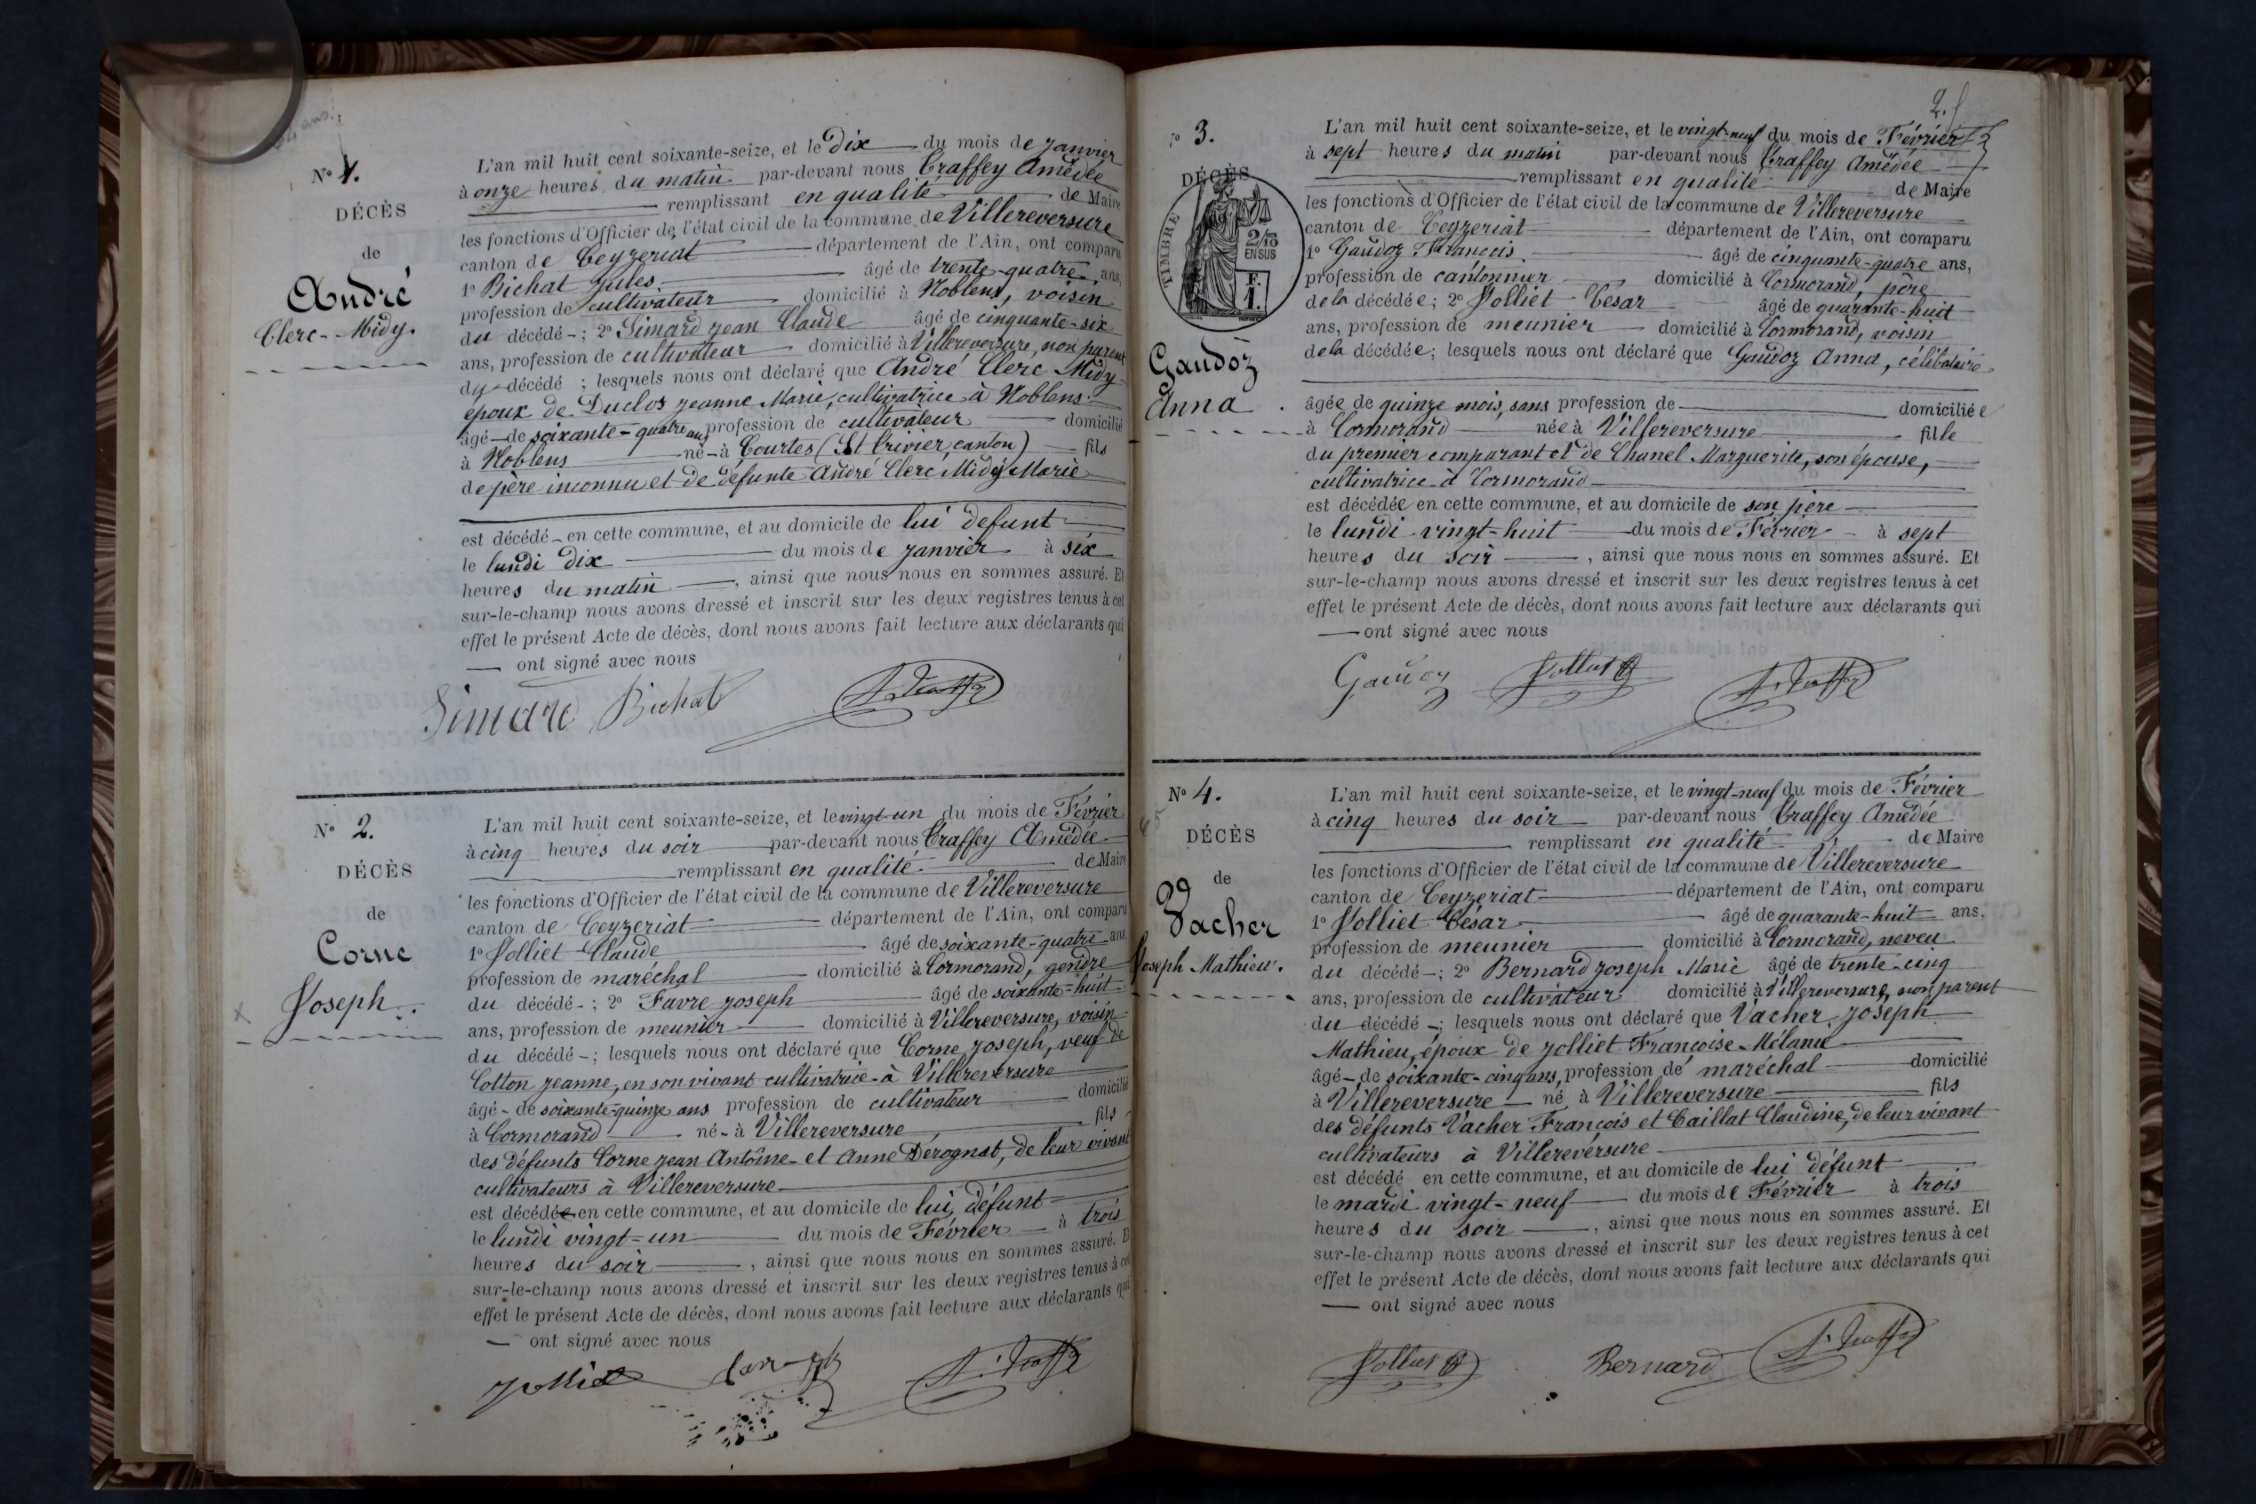 N° 1.
DÉCÈS
de
André
Clerc-Midy.
L'an mil huit cent soixante-seize, et le Dix du mois de Janvier
à onze heures du matin par-devant nous Traffey Amédée
remplissant en qualité de Maire
les fonctions d'Officier de l'état civil de la commune de Villereversure
canton de Ceyzeriat département de l'Ain, ont comparu
1° Bichat Jules. âgé de trente-quatre ans,
profession de cultivateur domicilié à Noblens, voisin
du décédé - ; 2° Simard Jean Claude âgé de cinquante-six
ans, profession de cultivateur domicilié à Villereversure, non parent
du décédé ; lesquels nous ont déclaré que André Clerc Midy
époux de Duclos Jeanne Marie, cultivatrice à Noblens
âgé de soixante-quatre ans profession de cultivateur domicilié
à Noblens né à Courtes (St Trivier, canton) fils
de père inconnu et de défunte André Clerc Midy Marie
est décédé en cette commune, et au domicile de lui défunt
le lundi dix du mois de Janvier à six
heures du matin , ainsi que nous nous en sommes assuré. Et
sur-le-champ nous avons dressé et inscrit sur les deux registres tenus à cet
effet le présent Acte de décès, dont nous avons fait lecture aux déclarants qui
ont signé avec nous
Simard Bichat A. Traffey
N° 2.
DÉCÈS
de
Corne
Joseph.
L'an mil huit cent soixante-seize, et le vingt-un du mois de Février
à cinq heures du soir par-devant nous Traffey Amédée
remplissant en qualité de Maire
les fonctions d'Officier de l'état civil de la commune de Villereversure
canton de Ceyzeriat département de l'Ain, ont comparu
1° Jolliet Claude âgé de soixante-quatre ans
profession de maréchal domicilié à Cormorand, gendre
du décédé - ; 2° Favre Joseph âgé de soixante-huit
ans, profession de meunier domicilié à Villereversure, voisin
du décédé - ; lesquels nous ont déclaré que Corne Joseph, veuf de
Cotton Jeanne, en son vivant cultivatrice à Villereversure
âgé - de soixante-quinze ans profession de cultivateur domicilié
à Cormorand né - à Villereversure fils
des défunts Corne Jean Antoine et Anne Dérognat, de leur vivant
cultivateurs à Villereversure
est décédé en cette commune, et au domicile de lui défunt
le lundi vingt-un du mois de Février à trois
heures du soir , ainsi que nous nous en sommes assuré. Et
sur-le-champ nous avons dressé et inscrit sur les deux registres tenus à cet
effet le présent Acte de décès, dont nous avons fait lecture aux déclarants qui
ont signé avec nous
Jolliet A. Traffey
2.
N° 3.
DÉCÈS
TIMBRE
2/10
EN SUS
F.
1.
Gaudoz
Anna
L'an mil huit cent soixante-seize, et le vingt-neuf du mois de Février
à sept heures du matin par-devant nous Traffey Amédée
remplissant en qualité de Maire
les fonctions d'Officier de l'état civil de la commune de Villereversure
canton de Ceyzeriat département de l'Ain, ont comparu
1° Gaudoz Francois. âgé de cinquante-quatre ans,
profession de cantonnier domicilié à Cormorand, père
de la décédée ; 2° Jolliet César âgé de quarante-huit
ans, profession de meunier domicilié à Cormorand, voisin
de la décédée ; lesquels nous ont déclaré que Gaudoz Anna, célibataire
âgée de quinze mois, sans profession de domiciliée
à Cormorand née à Villereversure fille
du premier comparant et de Chanel Marguerite, son épouse,
cultivatrice à Cormorand
est décédée en cette commune, et au domicile de son père
le lundi vingt-huit du mois de Février à sept
heures du soir , ainsi que nous nous en sommes assuré. Et
sur-le-champ nous avons dressé et inscrit sur les deux registres tenus à cet
effet le présent Acte de décès, dont nous avons fait lecture aux déclarants qui
ont signé avec nous
Gaudoz Jolliet A. Traffey
N° 4.
DÉCÈS
de
Vacher
Joseph Mathieu.
L'an mil huit cent soixante-seize, et le vingt-neuf du mois de Février
à cinq heures du soir par-devant nous Traffey Amédée
remplissant en qualité de Maire
les fonctions d'Officier de l'état civil de la commune de Villereversure
canton de Ceyzeriat département de l'Ain, ont comparu
1° Jolliet César âgé de quarante-huit ans,
profession de meunier domicilié à Cormorand, neveu
du décédé - ; 2° Bernard Joseph Marie âgé de trente-cinq
ans, profession de cultivateur domicilié à Villereversure, non parent
du décédé - ; lesquels nous ont déclaré que Vacher Joseph
Mathieu, époux de Jolliet Françoise Mélanie
âgé - de soixante-cinq ans, profession de maréchal domicilié
à Villereversure né à Villereversure fils
des défunts Vacher François et Caillat Claudine, de leur vivant
cultivateurs à Villereversure
est décédé en cette commune, et au domicile de lui défunt
le mardi vingt-neuf du mois de Février à trois
heures du soir , ainsi que nous nous en sommes assuré. Et
sur-le-champ nous avons dressé et inscrit sur les deux registres tenus à cet
effet le présent Acte de décès, dont nous avons fait lecture aux déclarants qui
ont signé avec nous
Jolliet Bernard A. Traffey